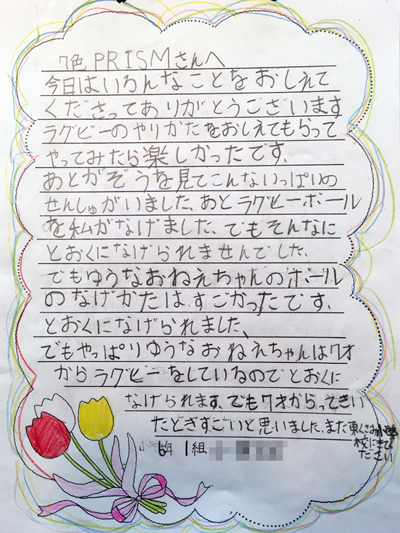 7色PRISMさんへ
今日はいろんなことをおしえて
くださってありがとうございます
ラグビーのやりかたをおしえてもらって
やってみたら楽しかったです、
あとがぞうを見てこんないっぱいの
せんしゅがいました、あとラグビーボール
を私がなげました、でもそんなに
とおくになげられませんでした、
でもゆうなおねえちゃんのボール
のなげかたは、すごかったです、
とおくになげられました、
でもやっぱりゆうなおねえちゃんは7才
からラグビーをしているのでとおくに
なげられます、でも7才からってきい
たときすごいと思いました、また東
校にきて
ださい
年 1組